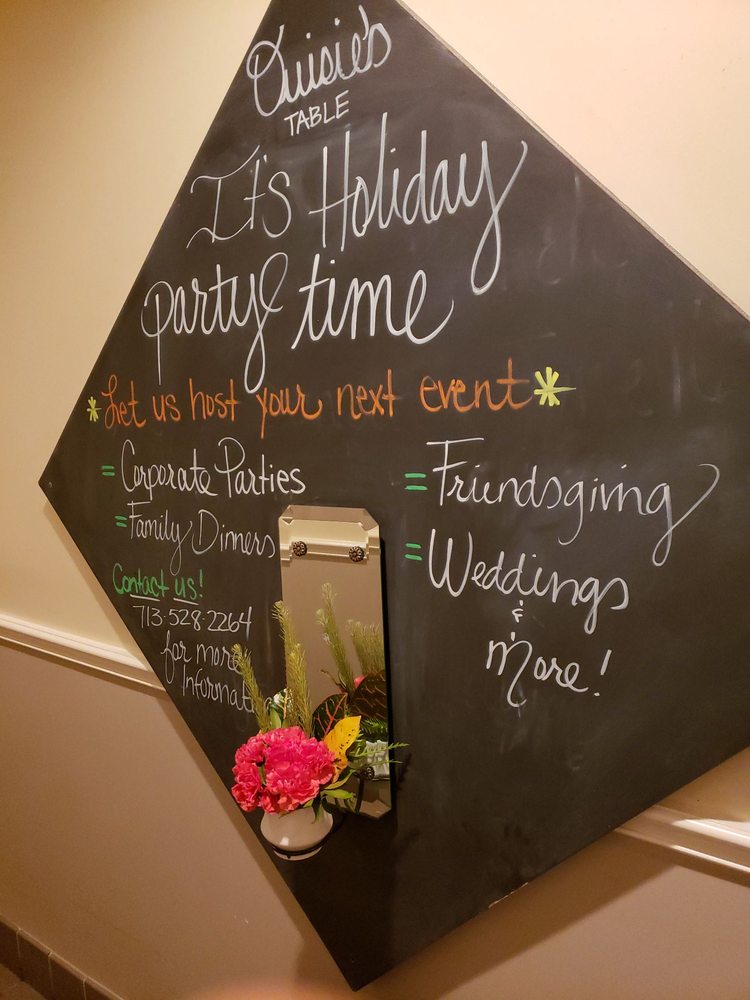 Ouisie's
TABLE
It's Holiday
party time
* Let us host your next event *
= Corporate Parties
= Family Dinners
Contact us!
713-528-2264
for more
= Friendsgiving
= Weddings
&
more!